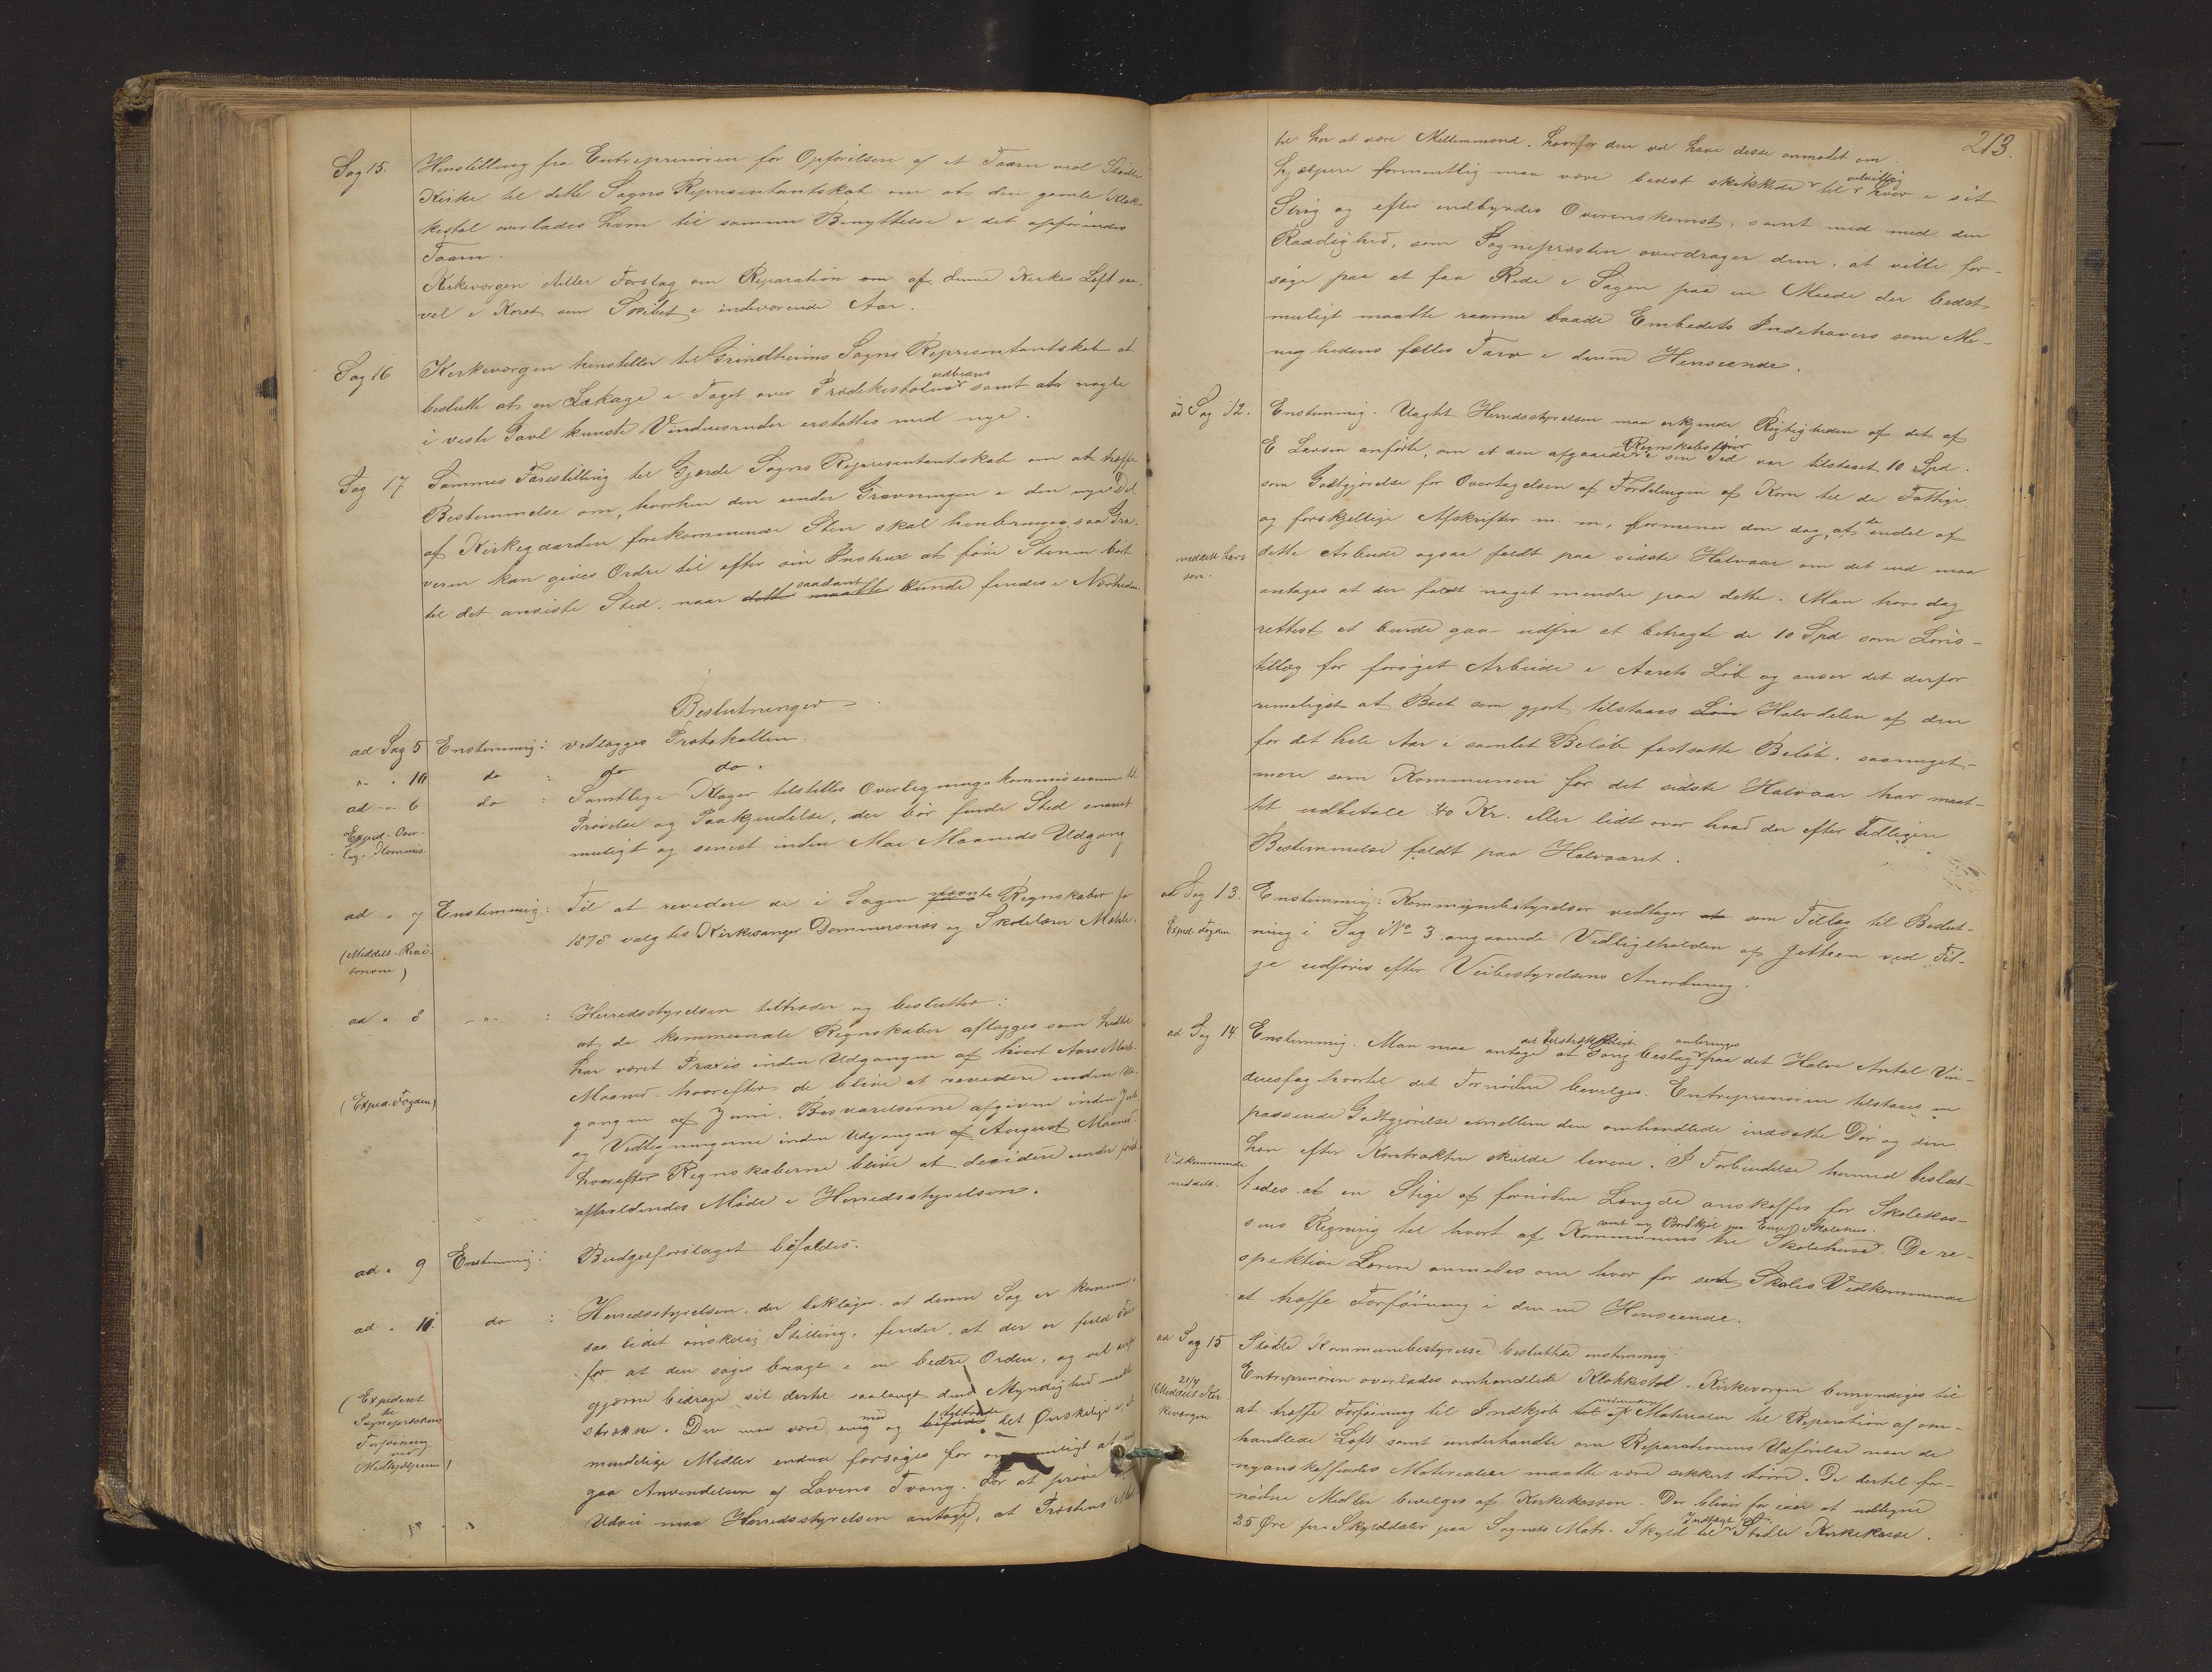 Sag 15. Henstilling fra Entreprenøren for Opførelsen af et Taarn ved Stødle
Kirke til dette Sogns Repræsentantskab om at den gamle Klok-
kestol overlades ham til samme Benyttelse i det opførendes
Taarn.
Kirkevergen stiller Forslag om Reparation om af denne Kirkes Loft saa-
vel i Koret som Skibet i indeværende Aar.
Sag 16 Kirkevergen henstiller til Grindheims Sogns Repræsentantskab at
beslutte at en Lækage i Taget over Prædikestolen udbedres samt at nogle
i vestre Gavl knuste Vinduesruder erstattes med nye.
Sag 17 Sammes Forestilling til Gjerde Sogns Repræsentantskab om at træffe
Bestemmelse om, hvorhen den under Gravningen i den nye Del
af Kirkegaarden forekommende Sten skal henbringes, saa Gra-
veren kan gives Ordre til efter sin Instrux at føre Stenen bort
til det anviste Sted, naar dette maatte saadant kunde findes i Nærheden.
Beslutninger
ad Sag 5 Enstemmig: vedlægges Protokollen.
" " 10 do : do do.
ad " 6 do : Samtlige Klager tilstilles Overligningskommissionen til
Exped. Over-
lig. Kommis.
Prøvelse og Paakjendelse, der bør finde Sted snarest
muligt og senest inden Mai Maaneds Udgang
ad " 7 Enstemmig: Til at revidere de i Sagen nævnte Regnskaber for
1878 valgtes Kirkesanger Dommersnæs og Skolelærer Mehle.
(Meddelt Revi-
sorerne)
ad " 8 - " - : Herredsstyrelsen tiltræder og beslutter:
at de kommunale Regnskaber aflægges som hidtil
har været Praxis inden Udgangen af hvert Aars Marts
Maaned, hvorefter de bliver at revidere inden Ud-
(Exped. Fogden)
gangen af Juni. Besvarelserne afgives inden Juli
og Vedtegningerne inden Udgangen af August Maaned,
hvorefter Regnskaberne bliver at decidere under først
afholdendes Møde i Herredsstyrelsen.
ad " 9 Enstemmig: Budgetforslaget bifaldes.
ad " 11. do : Herredsstyrelsen, der beklager at denne Sag er kommen i
saa lidet ønskelig Stilling, finder, at der er fuld
for at den søges bragt i en bedre Orden, og vil
gjerne bidrage sit dertil saalangt dens Myndighed
strække. Den maa være enig med og tiltræde det Ønskelige i, at
mindelige Midler endnu forsøges for om muligt at und-
gaa Anvendelsen af Lovens Tvang. For at prøve
Udvei maa Herredsstyrelsen antage, at Præstens Med-
(Expederet
til
Sognepræsten
Forføining
ved
Medhjælperne)
213.
til her at være Mellemmænd, hvorfor den vil have disse anmodet om
hjælpere formentlig maa være bedst skikkede til velvillig hver i sit
Strøg og efter indbyrdes Overenskomst, samt med med den
Raadighed, som Sognepræsten overdrager dem, at ville for-
søge paa at faa Rede i Sagen paa en Maade der bedst
muligt maatte ramme baade Embedets Indehavers som Me-
nighedens fælles Tarv i denne Henseende.
ad Sag 12. Enstemmig. Uagtet Herredsstyrelsen maa erkjende Rigtigheden af det af
E Larsen anførte, om at den afgaaede Regnskabsfører i sin Tid var tilstaaet 10 Spd.
som Godtgjørelse for Overtagelsen af Fordelingen af Korn til de Fattige
og forskjellige Afskrifter m. m., formener den dog, at endel af
meddelt Lar-
sen.
dette Arbeide ogsaa faldt paa sidste Halvaar om det end maa
antages at der faldt noget mindre paa dette. Man har dog
rettest at burde gaa udfra at betragte de 10 Spd som Løns-
tillæg for forøget Arbeide i Aarets Løb og anser det derfor
rimeligst at Boet som gjort tilstaaes Løn Halvdelen af den
for det hele Aar i samlet Beløb fastsatte Beløb, saameget-
mere som Kommunen for det sidste Halvaar har maat-
tet udbetale 40 Kr. eller lidt over hvad der efter Tidligere
Bestemmelse faldt paa Halvaaret.
ad Sag 13. Enstemmig: Kommunebestyrelsen vedtager at som Tillæg til Beslut-
Exped. Fogden
ning i Sag No 3 angaaende Vedligeholden af Jetteen ved Fit-
je udføres efter Veibestyrelsens Anordning.
ad Sag 14. Enstemmig. Man maa antage det tilstrækkeligt at Gangbeslag anbringes paa det Halve Antal Vin-
duesfag hvortil det Fornødne bevilges. Entreprenøren tilstaaes en
passende Godtgjørelse mellem den omhandlede indsatte Dør og den
han efter Kontrakten skulde levere. I Forbindelse hermed beslut-
Vedkommende
meddelt.
tedes at en Stige af fornøden Længde anskaffes for Skolekas-
sens Regning til hvert af Kommunens tre Skolehuse samt ny Skolehus. De re-
spektive Lærere anmodes om hver for sin Skoles Vedkommende
at træffe Forføining i denne Henseende.
ad Sag 15 Stødle Kommunebestyrelse besluttede enstemmig:
21/4
(Meddelt Kir-
kevergen
Entreprenøren overlades omhandlede Klokkestol. Kirkevergen bemyndiges til
at træffe Forføining til Indkjøb af Materialer til Reparation af om-
handlede Loft samt underhandle om Reparationens Udførelse naar de
nyanskaffendes Materialer maatte være sikkert tørre. De dertil for-
nødne Midler bevilges af Kirkekassen. Der bliver for iaar at udligne
25 Øre pr. Skylddaler paa Sognets Matr. Skyld til Indtægt for Stødle Kirkekasse.